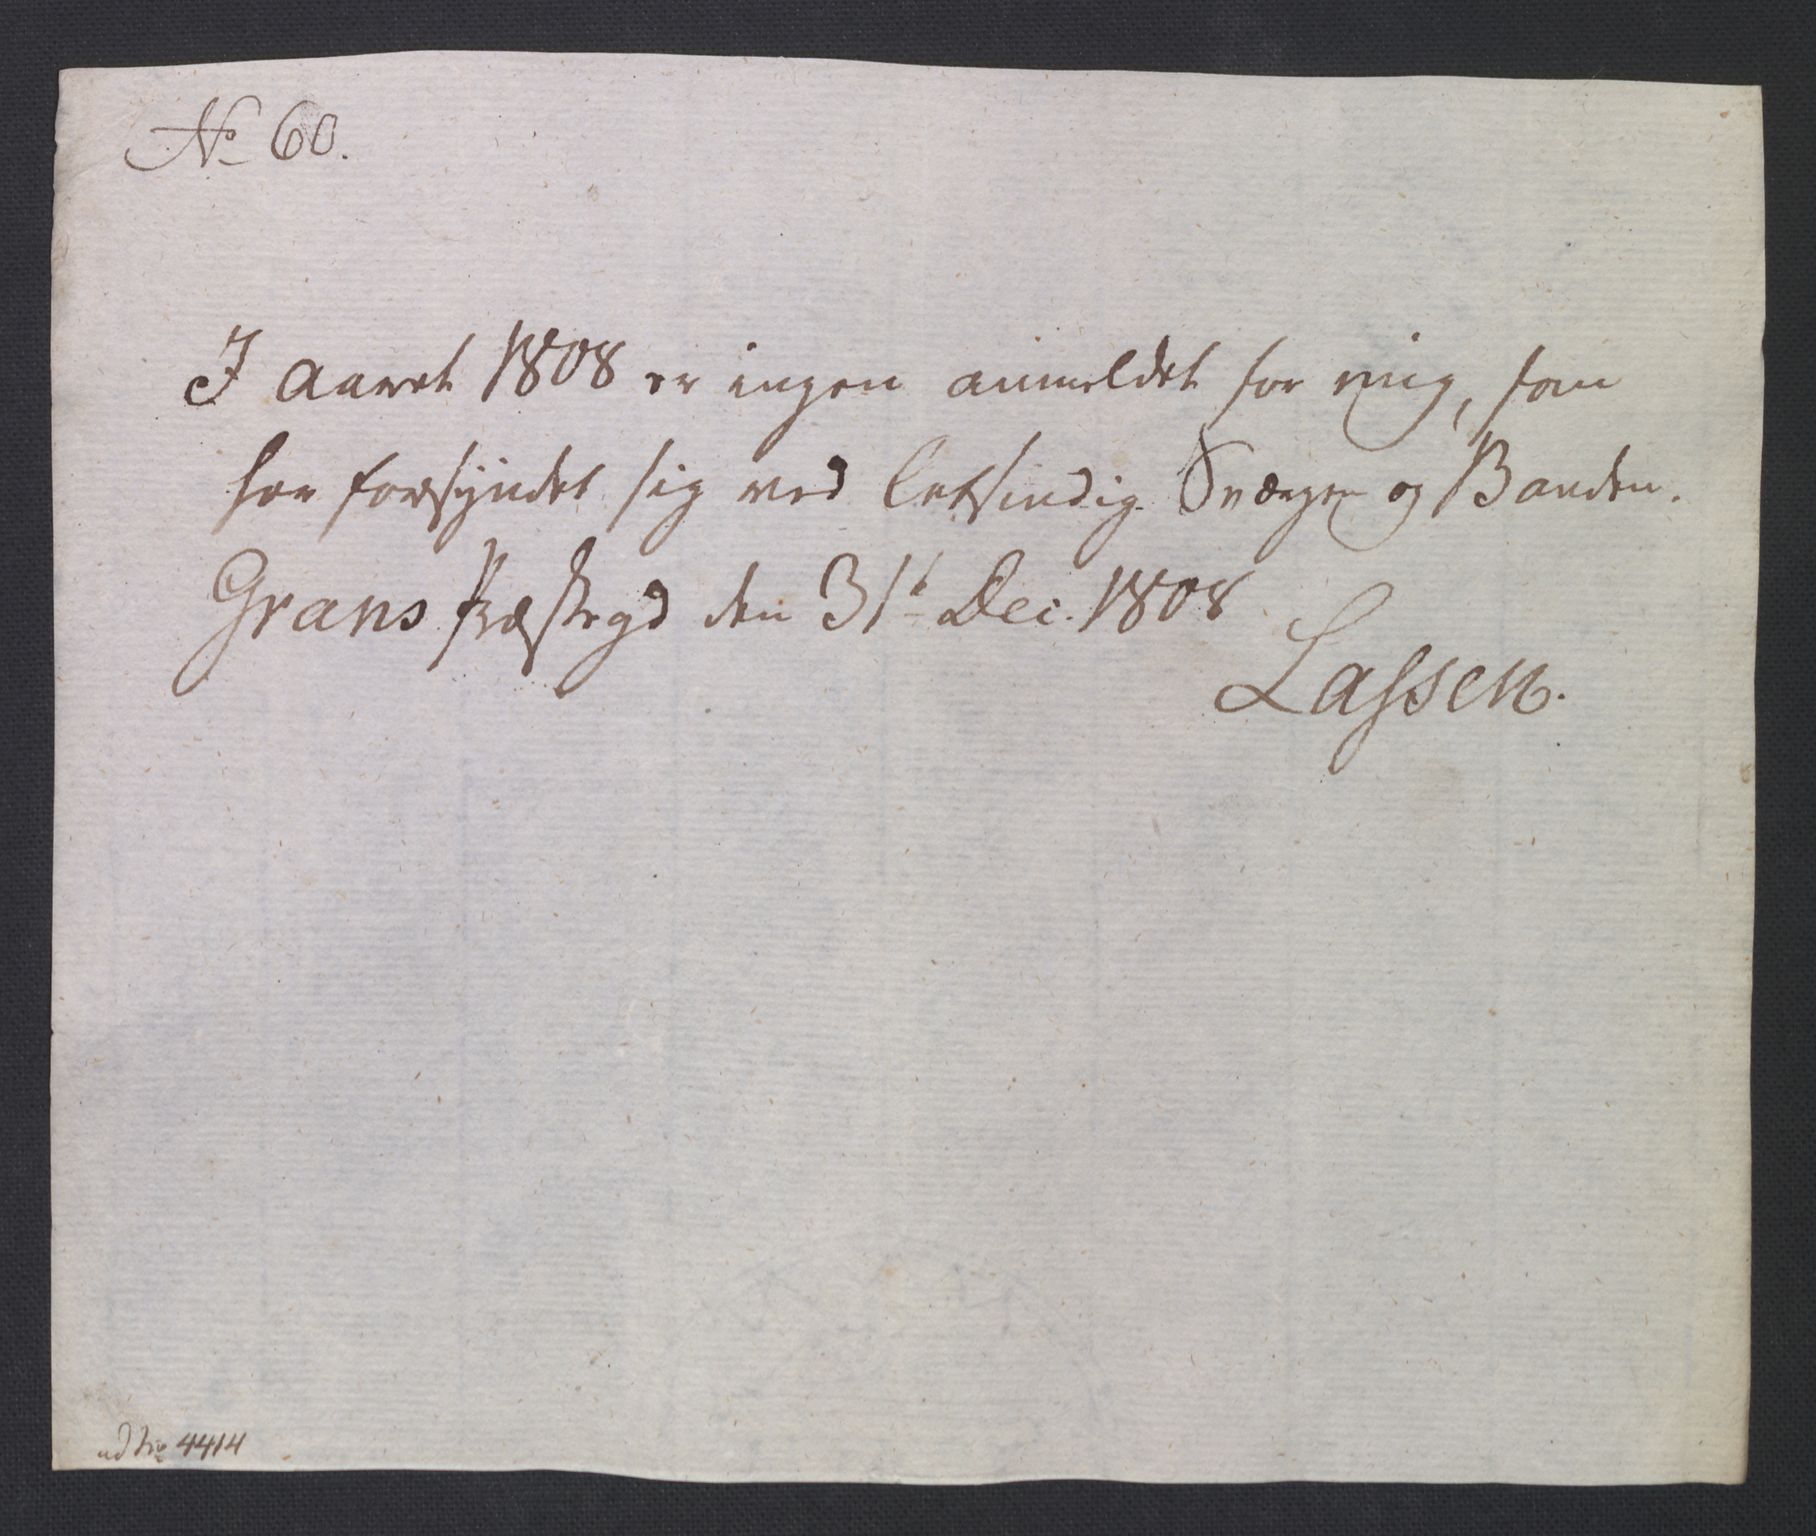 No 60.
I Aaret 1808 er ingen anmeldet for mig, som
har forsyndet sig ved letsindig Sværgen og Banden.
Grans Præstegd den 31t Dec. 1808
Lassen.
4414